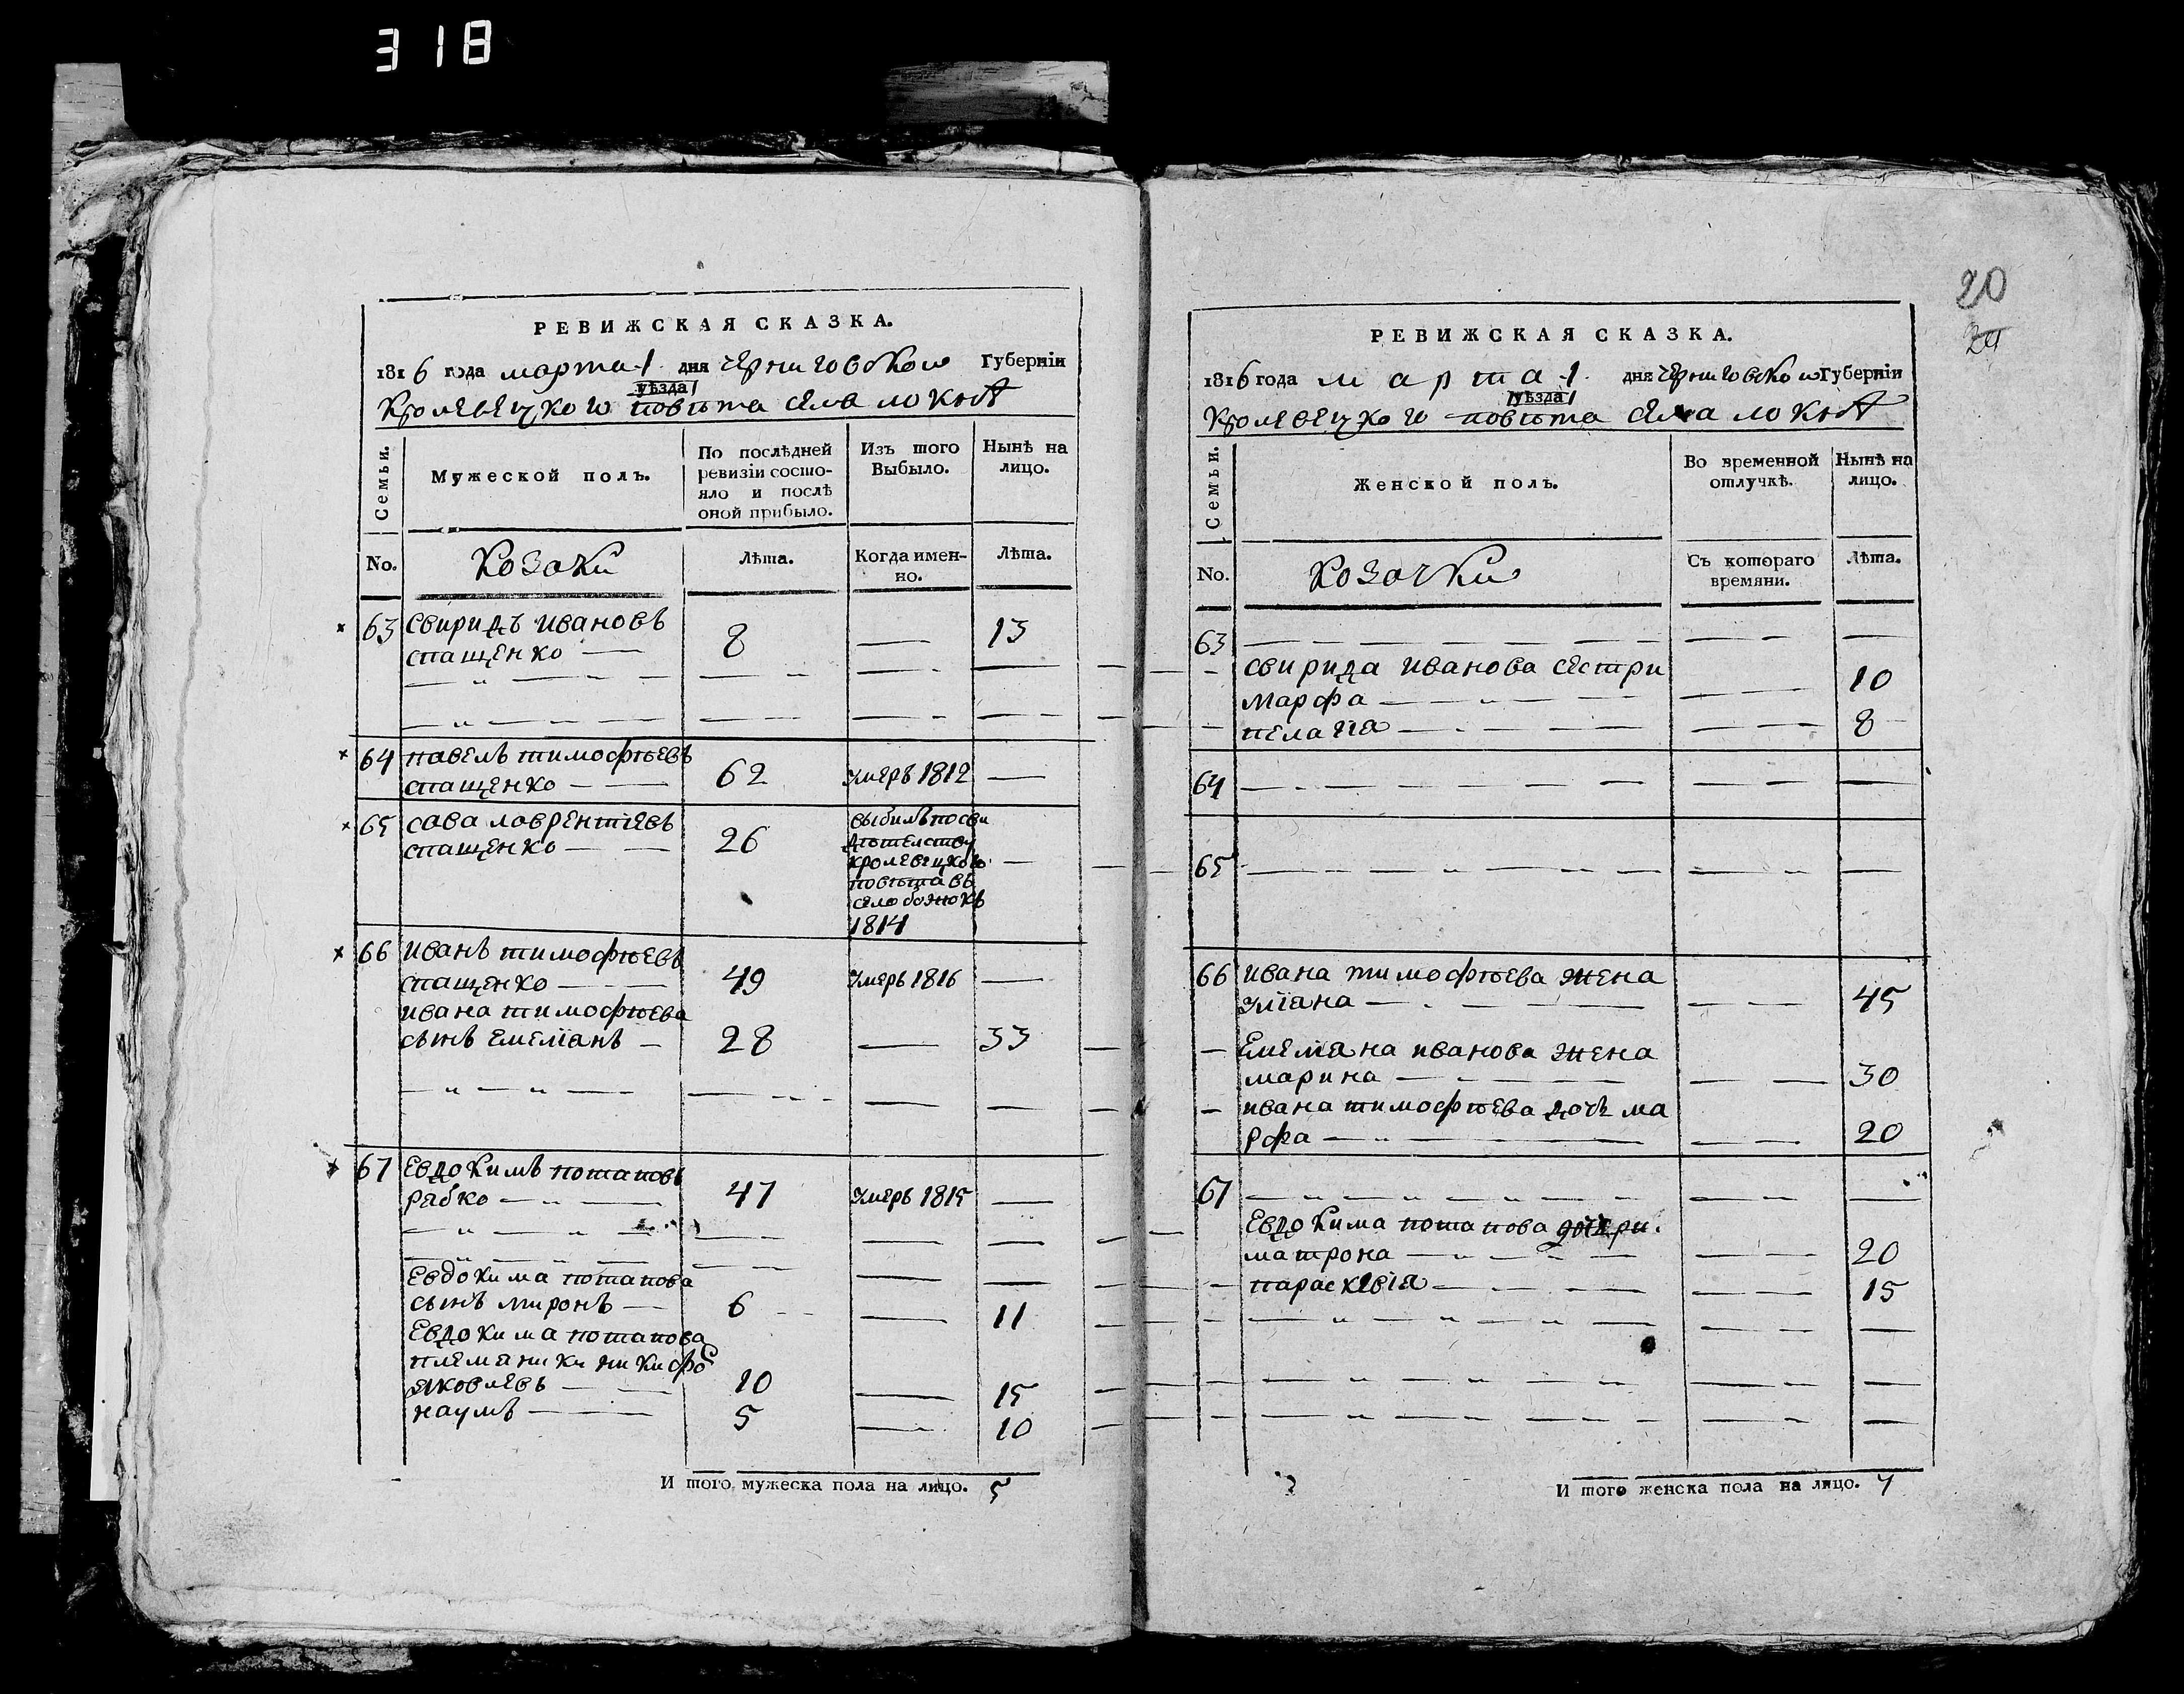 318
РЕВИЖСКАЯ СКАЗКА.
1816 года марта 1 дня Черниговской Губерніи
уѣзда
Кролевецкого повѣта села Локнѣ
Семьи.
Мужеской полъ.
По послѣдней ревизіи состояло и послѣ оной прибыло.
Изъ того Выбыло.
Нынѣ на лицо.
No.
Козаки
Лѣта.
Когда именно.
Лѣта.
63 свиридъ ивановъ
спащенко — 8 — 13
64 павелъ тимофѣевъ
спащенко — 62 умеръ 1812 —
65 сава лаврентіевъ
спащенко — 26 —
выбилъ по сви
дѣтелству
кролевецкого
повѣта въ
село божокъ
1814
66 иванъ тимофѣевъ
спащенко — 49 умеръ 1816 —
ивана тимофѣева
сынъ емеліанъ — 28 — 33
67 Евдокимъ потаповъ
рабко — 47 умеръ 1815 —
Евдокима потапова
сынъ миронъ — 6 — 11
Евдокима потапова
племаники никифо
яковлевъ — 10 — 15
наумъ — 5 — 10
И того мужеска пола на лицо. 5
20
РЕВИЖСКАЯ СКАЗКА.
1816 года марта 1 дня Черниговской Губерніи
уѣзда
Кролевецкого повѣта села Локнѣ
Семьи.
Женской полъ.
Во временной отлучкѣ.
Нынѣ на лицо.
No.
Козачки
Съ котораго времяни.
Лѣта.
63
свирида иванова сестри
марфа — 10
пелагія — 8
64
65
66 ивана тимофѣева жена
уліана — 45
Емеліана иванова жена
марина — 30
ивана тимофѣева дочь ма
рфа — 20
67
Евдокима потапова дочери
матрона — 20
параскевія — 15
И того женска пола на лицо. 7